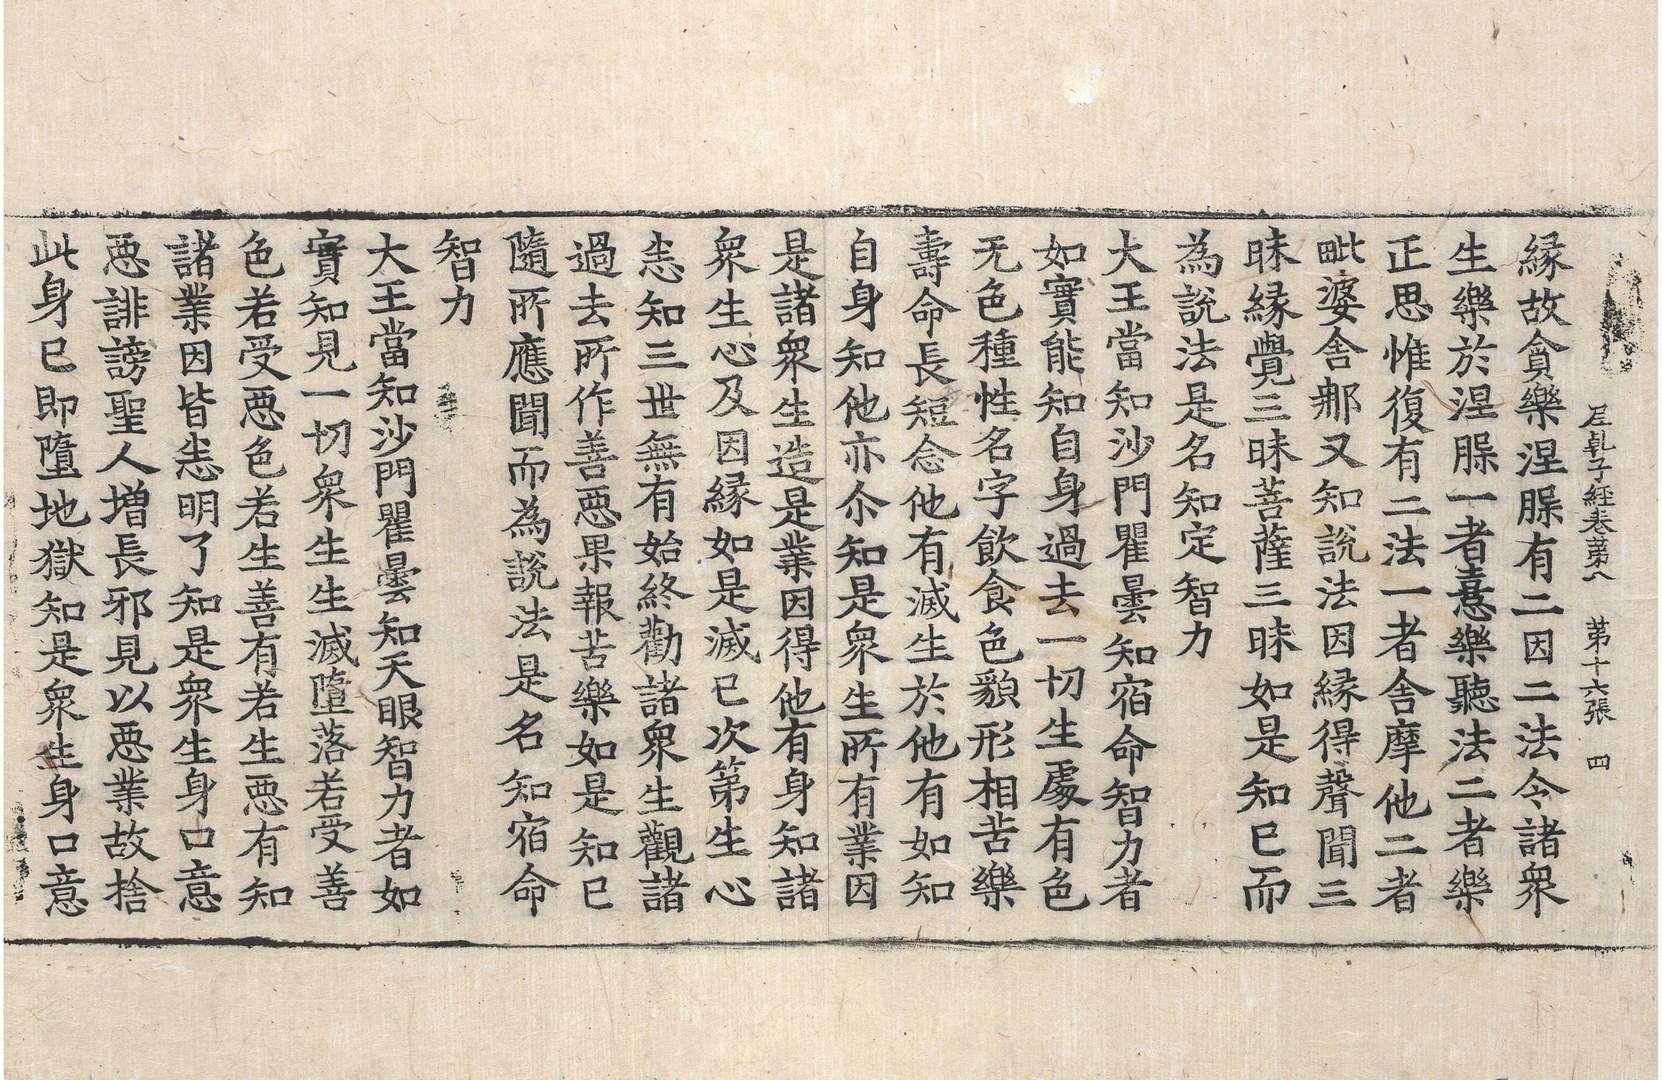 尼乹子經卷第八　第十六張　四
縁故貪樂涅腂有二因二法令諸衆
生樂於涅腂一者憙樂聽法二者樂
正思惟復有二法一者舍摩他二者
毗婆舍那又知說法因縁得聲聞三
昧縁覺三昧菩薩三昧如是知已而
為說法是名知定智力
大王當知沙門瞿曇知宿命智力者
如實能知自身過去一切生處有色
无色種性名字飲食色貌形相苦樂
壽命長短念他有滅生於他有如知
自身知他亦尒知是衆生所有業因
是諸衆生造是業因得他有身知諸
衆生心及因縁如是滅已次第生心
悉知三世無有始終勸諸衆生觀諸
過去所作善惡果報苦樂如是知已
隨所應聞而為說法是名知宿命
智力
大王當知沙門瞿曇知天眼智力者如
實知見一切衆生生滅墮落若受善
色若受惡色若生善有若生惡有知
諸業因皆悉明了知是衆生身口意
惡誹謗聖人增長邪見以惡業故捨
此身已即墮地獄知是衆生身口意